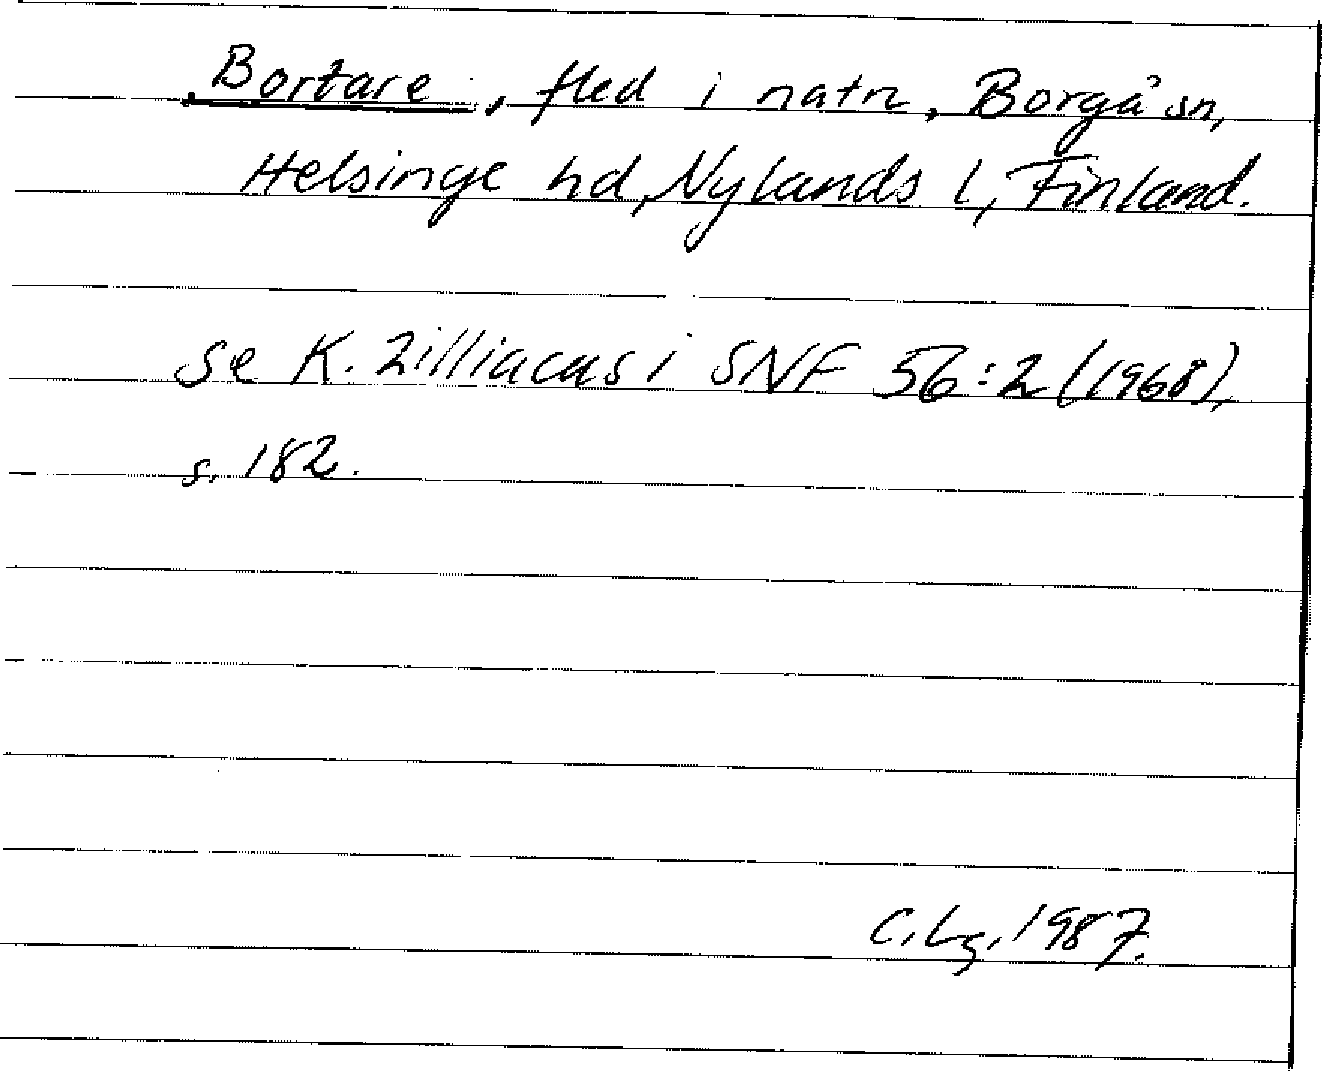 Bortare, fled i natn, Borgå sn,
Helsinge hd, Nylands l, Finland.
Se K. Zilliacus i SNF 56:2 (1968),
s. 182.
C. Lg. 1987.